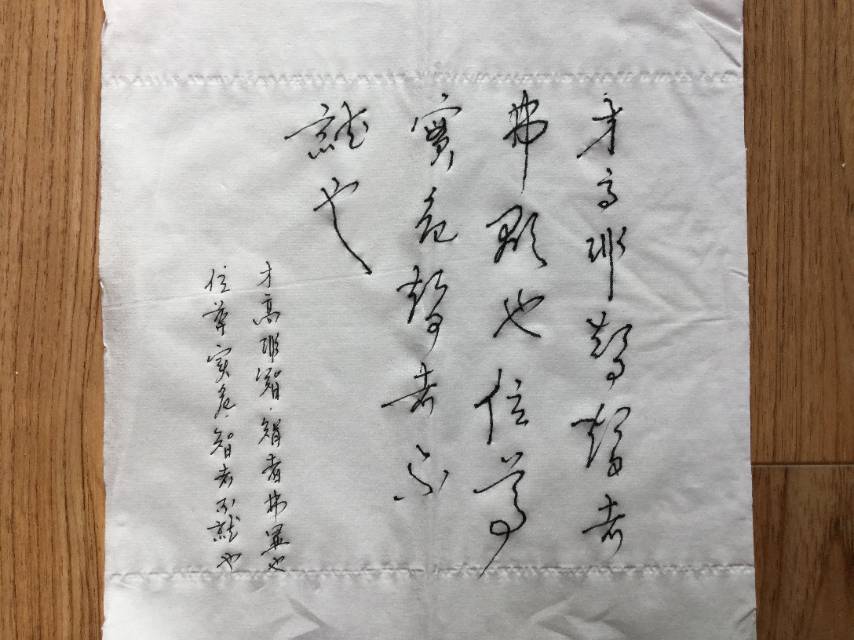 才高非智智者
弗顯也位尊
實危智者不
就也
才高非智智者弗显也
位尊实危智者不就也